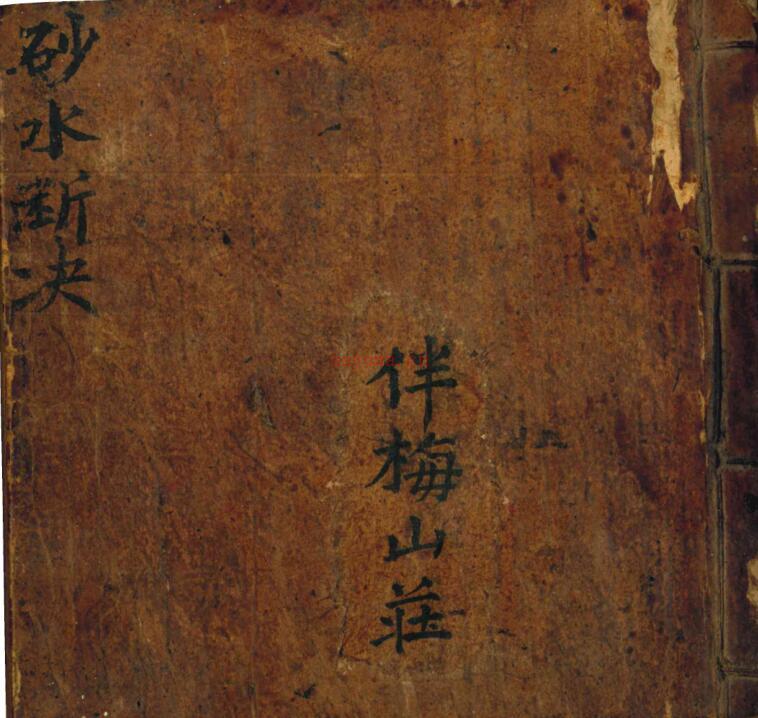 砂水断决
伴梅山莊